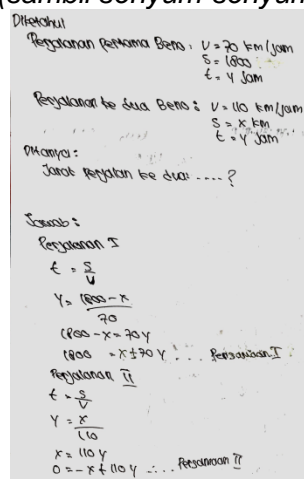 (sambil senyum-senyum
Diketahui
Perjalanan pertama Beno : V = 70 km/jam
S = 1800
t = Y jam
Perjalanan ke dua Beno : V = 110 km/jam
S = x km
t = Y jam
Ditanya :
Jarak perjalan ke dua .... ?
Jawab :
Perjalanan I
t = S/V
Y = 1800 - x / 70
1800 - x = 70 Y
1800 = x + 70 Y ... Persamaan I
Perjalanan II
t = S/V
Y = x/110
x = 110 Y
0 = -x + 110 Y ... Persamaan II